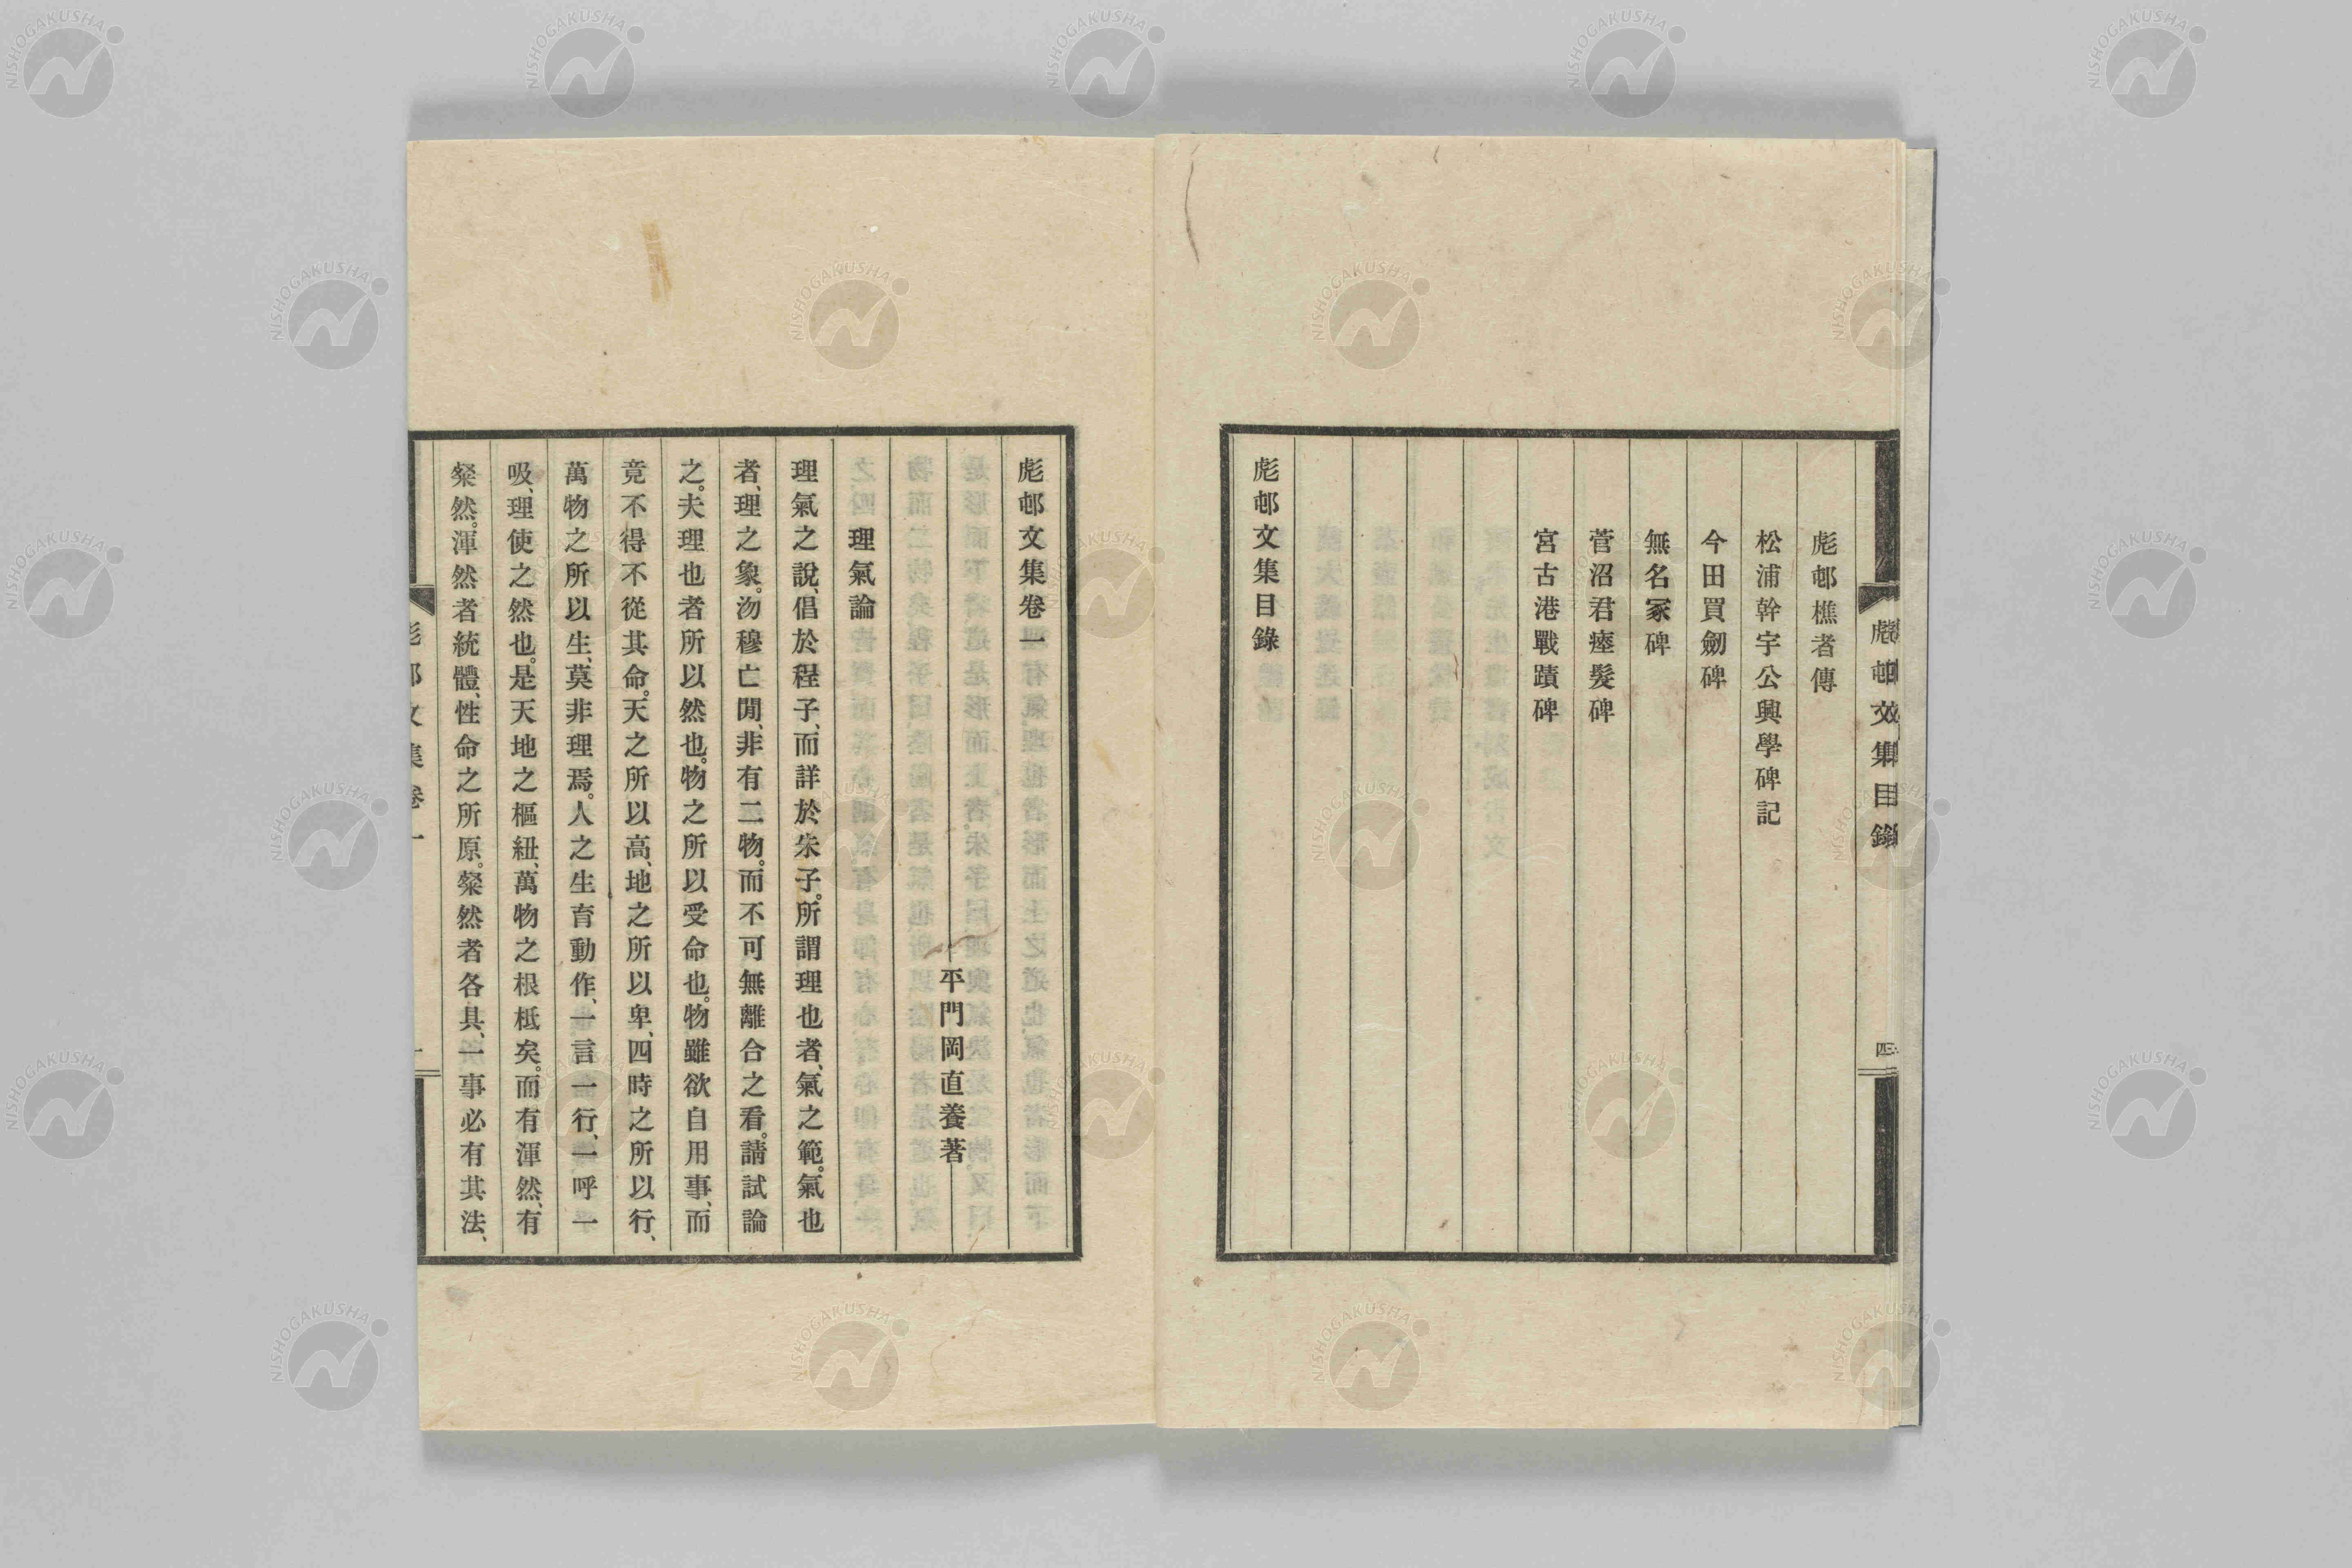 彪邨文集目錄
四
彪邨樵者傳
松浦幹宇公興學碑記
今田買劒碑
無名冢碑
菅沼君瘞髮碑
宮古港戰蹟碑
彪邨文集目錄
彪邨文集卷一
平門岡直養著
理氣論
理氣之說、倡於程子、而詳於朱子。所謂理也者、氣之範。氣也
者、理之象。沕穆亡閒、非有二物。而不可無離合之看。請試論
之。夫理也者所以然也。物之所以受命也。物雖欲自用事、而
竟不得不從其命。天之所以高、地之所以卑、四時之所以行、
萬物之所以生、莫非理焉。人之生育動作、一言一行、一呼一
吸、理使之然也。是天地之樞紐、萬物之根柢矣。而有渾然、有
粲然。渾然者統體、性命之所原。粲然者各具、一事必有其法、
彪邨文集卷一
NISHOGAKUSHA